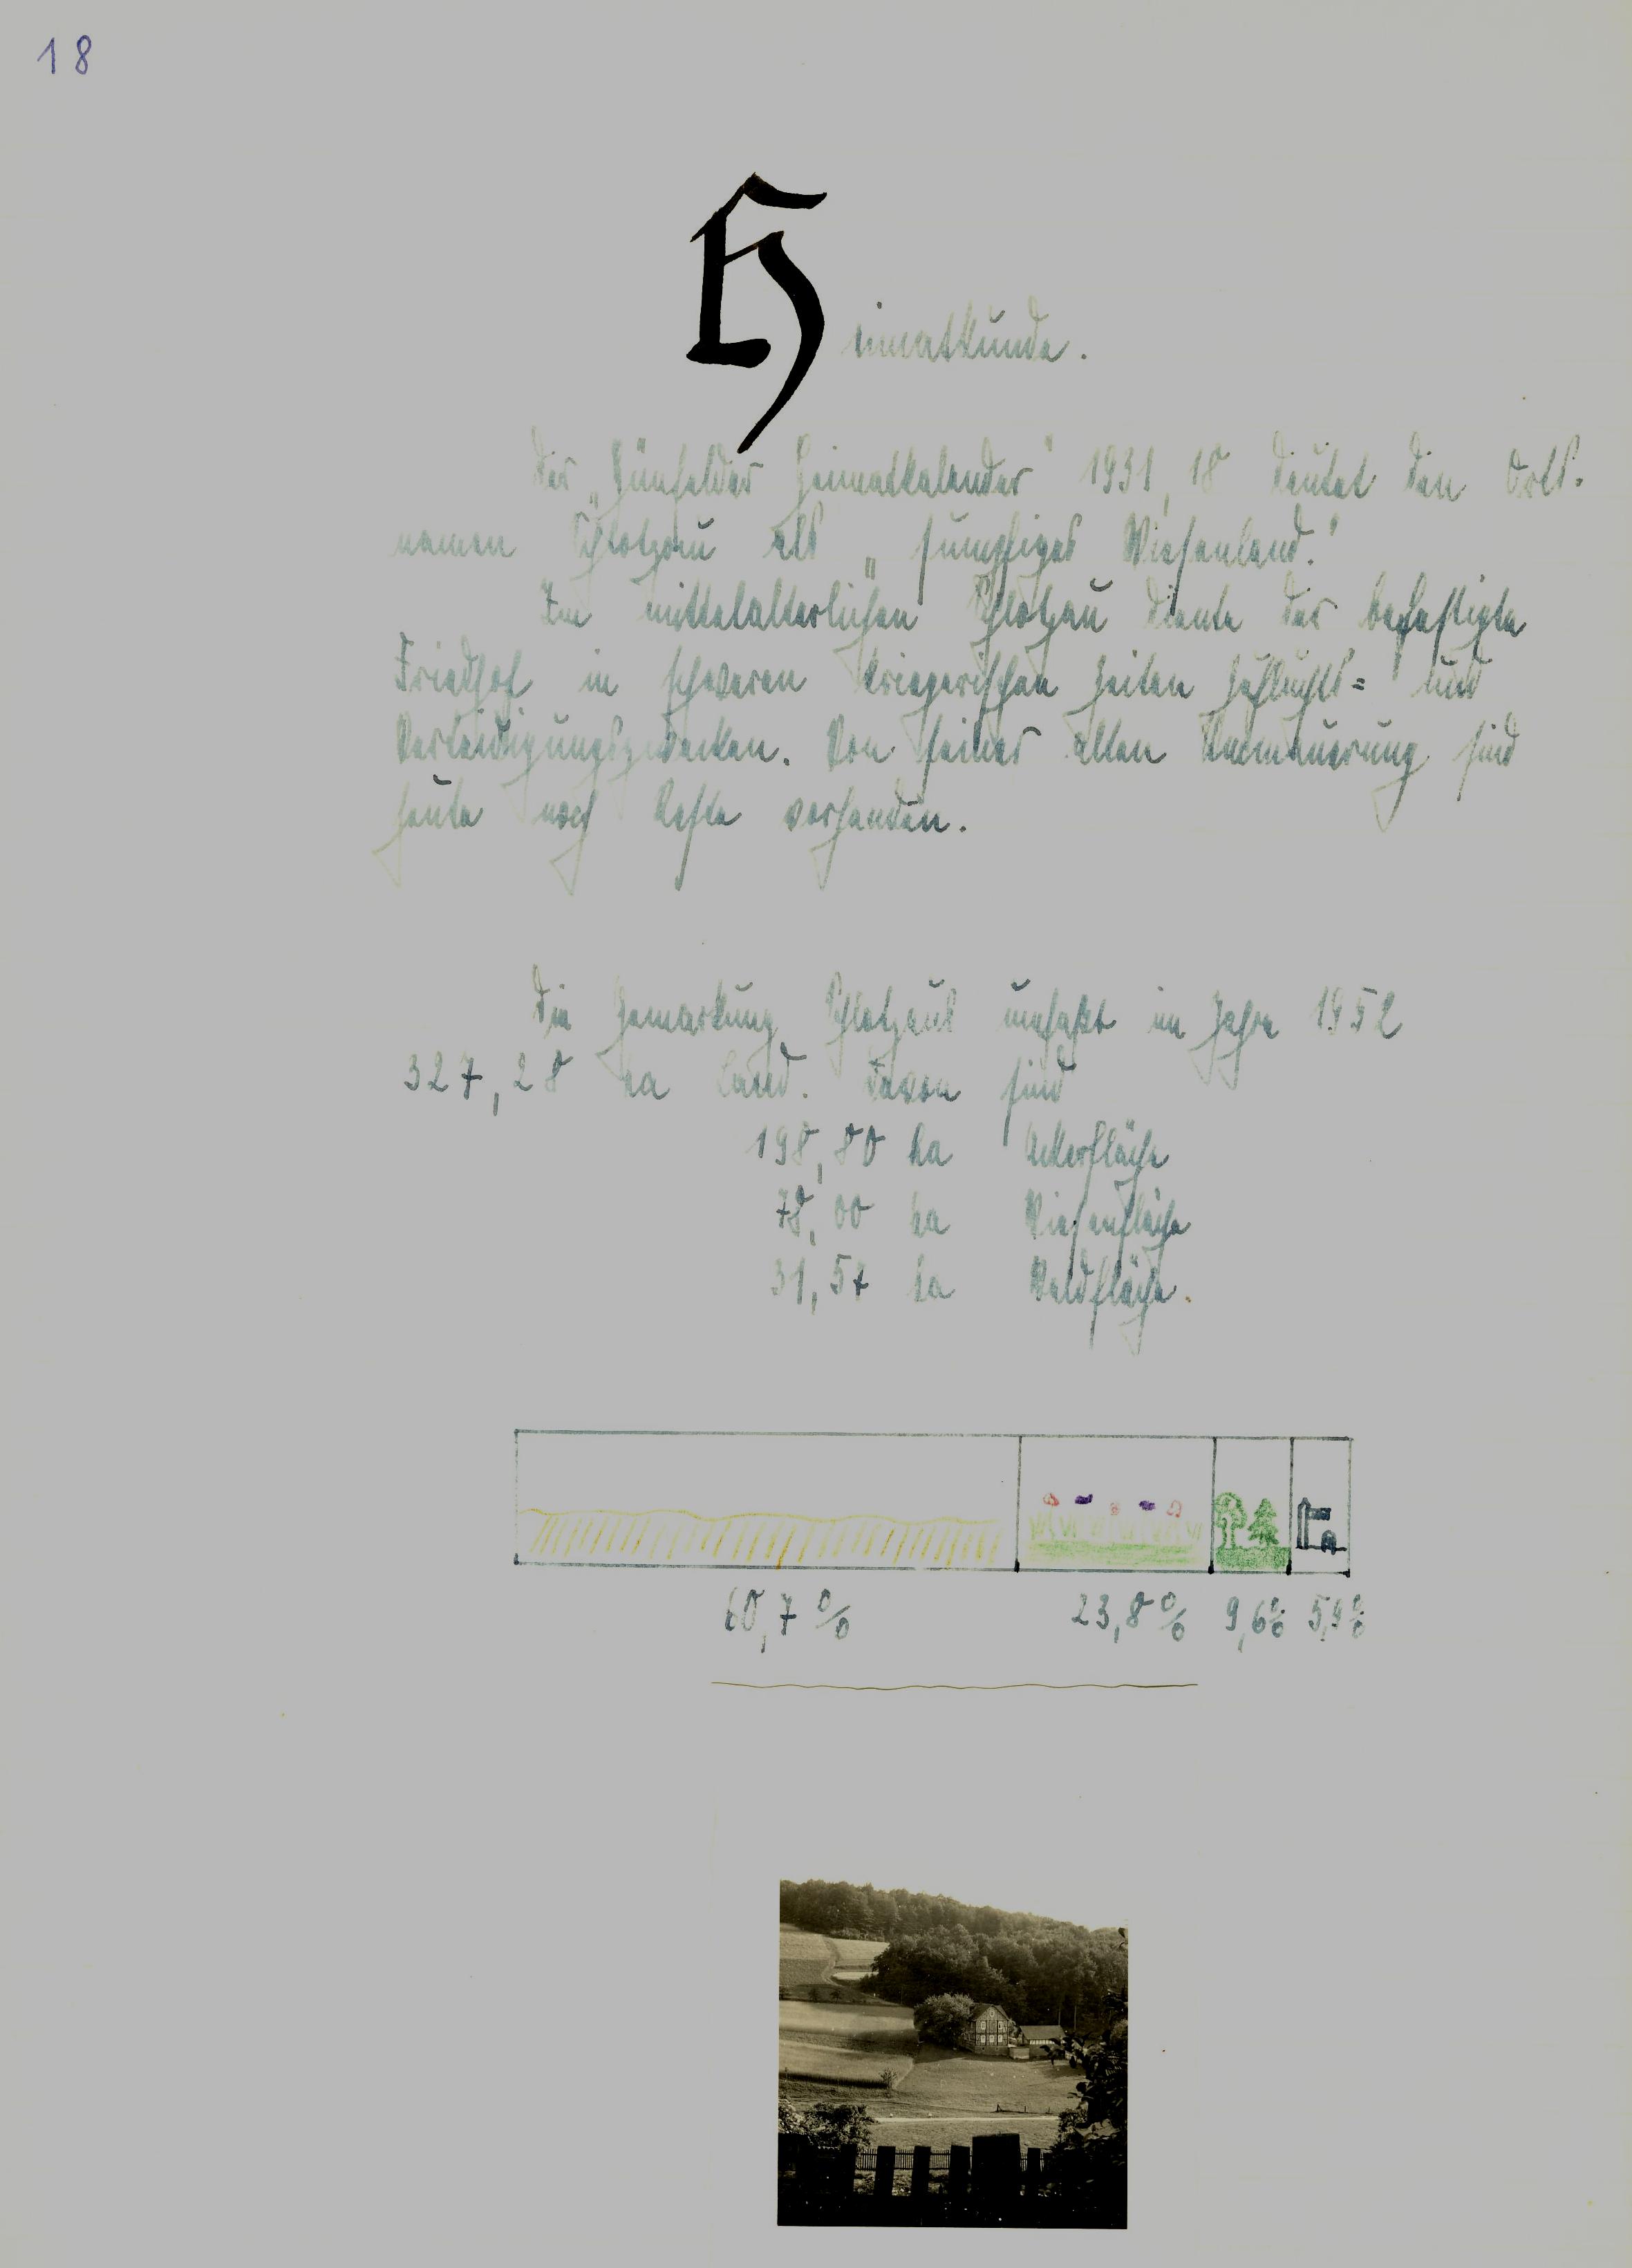 18
Heimatkunde.
Der „Hünfelder Heimatkalender" 1931, 18 deutet den Orts-
namen Schlotzau als „sumpfiges Wiesenland."
Im mittelalterlichen Schlotzau diente der befestigte
Friedhof in schweren kriegerischen Zeiten Zufluchts= und
Verteidigungszwecken. Von seiner alten Ummauerung sind
heute noch Reste vorhanden.
Die Gemarkung Schlotzau umfaßt im Jahre 1952
327,28 ha Land. Davon sind
198,80 ha Ackerfläche
78,00 ha Wiesenfläche
31,57 ha Waldfläche.
60,7 % 23,8 % 9,6 % 5,9 %